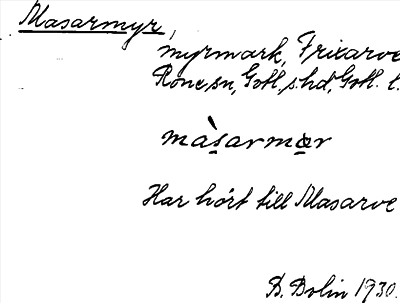 Masarmyr,
myrmark, Frixarve
Rone sn, Gotl. s. hd, Gotl. l.
màsarmør
Har hört till Masarve
B. Bolin 1930.